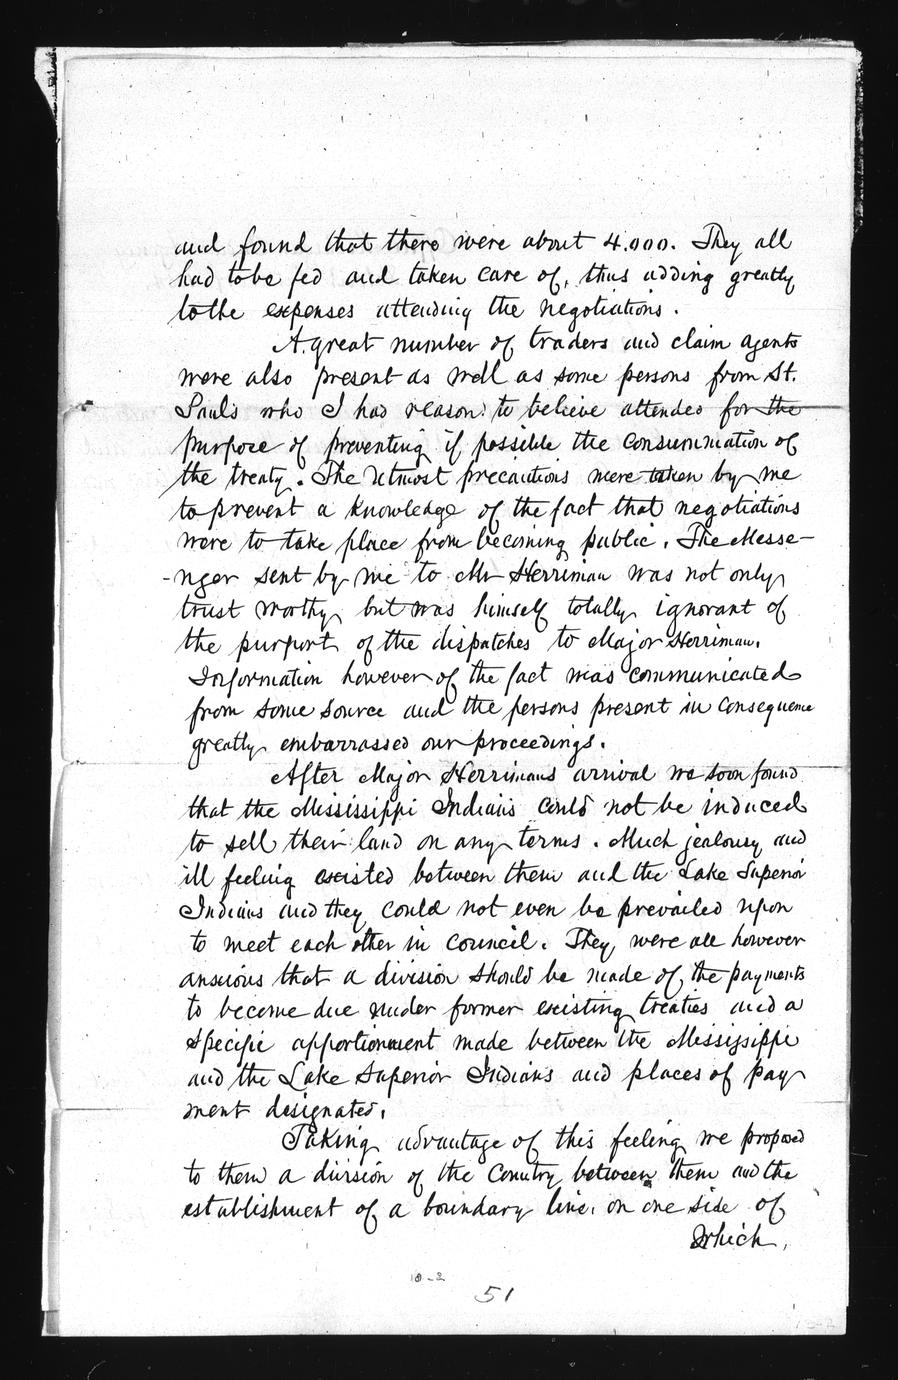 and found that there were about 4.000. They all
had tobe fed and taken care of, thus adding greatly
tothe expenses attending the negotiations.
A great number of traders and claim agents
were also present as well as some persons from St.
Pauls who I had reason to believe attended for the
purpose of preventing if possible the consummation of
the treaty. The utmost precautions were taken by me
to prevent a knowledge of the fact that negotiations
were to take place from becoming public. The Messe-
-nger sent by me to Mr Herriman was not only
trust worthy but was himself totally ignorant of
the purport of the dispatches to Major Herriman.
Information however of the fact was communicated
from some source and the persons present in consequence
greatly embarrassed our proceedings.
After Major Herrimans arrival we soon found
that the Mississippi Indians could not be induced
to sell their land on any terms. Much jealousy and
ill feeling existed between them and the Lake Superior
Indians and they could not even be prevailed upon
to meet each other in council. They were all however
anxious that a division should be made of the payments
to become due under former existing treaties and a
specific apportionment made between the Mississippi
and the Lake Superior Indians and places of pay
ment designated.
Taking advantage of this feeling we proposed
to them a division of the Country between them and the
establishment of a boundary line, on one side of
Which,
18-2
51